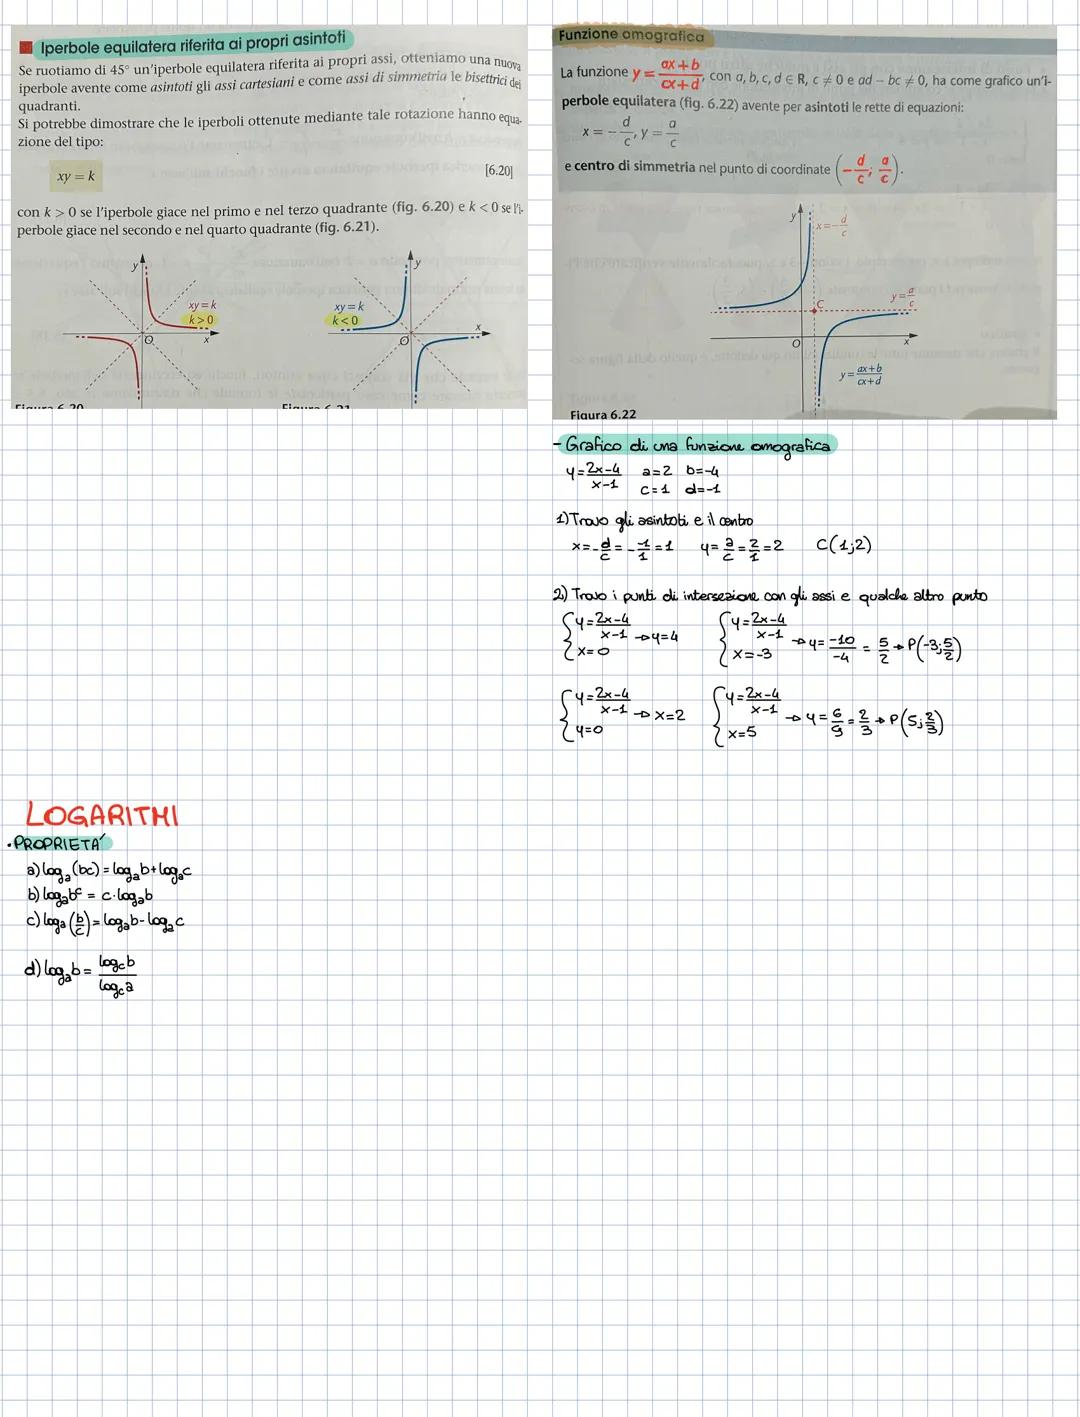 Iperbole equilatera riferita ai propri asintoti
Se ruotiamo di 45° un'iperbole equilatera riferita ai propri assi, otteniamo una nuova
iperbole avente come asintoti gli assi cartesiani e come assi di simmetria le bisettrici dei
quadranti.
Si potrebbe dimostrare che le iperboli ottenute mediante tale rotazione hanno equa-
zione del tipo:
xy = k [6.20]
con k > 0 se l'iperbole giace nel primo e nel terzo quadrante (fig. 6.20) e k < 0 se l'i-
perbole giace nel secondo e nel quarto quadrante (fig. 6.21).
y
xy = k
k > 0
O
x
y
xy = k
k < 0
x
O
Figura 6.20
Figura 6.21
Funzione omografica
La funzione y = (ax + b)/(cx + d), con a, b, c, d ∈ R, c ≠ 0 e ad – bc ≠ 0, ha come grafico un'i-
perbole equilatera (fig. 6.22) avente per asintoti le rette di equazioni:
x = –d/c, y = a/c
e centro di simmetria nel punto di coordinate (–d/c; a/c).
y
x = –d/c
C
y = a/c
O
x
y = (ax + b)/(cx + d)
Figura 6.22
- Grafico di una funzione omografica
y = (2x-4)/(x-1) a=2 b=-4
c=1 d=-1
1) Trovo gli asintoti e il centro
x = -d/c = - -1/1 = 1 y = a/c = 2/1 = 2 C(1;2)
2) Trovo i punti di intersezione con gli assi e qualche altro punto
{ y = (2x-4)/(x-1) → y=4
x=0
{ y = (2x-4)/(x-1) → y = -10/-4 = 5/2 → P(-3;5/2)
x=-3
{ y = (2x-4)/(x-1) → x=2
y=0
{ y = (2x-4)/(x-1) → y = 6/9 = 2/3 → P(5;2/3)
x=5
LOGARITMI
• PROPRIETA'
a) logₐ(bc) = logₐb + logₐc
b) logₐbᶜ = c·logₐb
c) logₐ(b/c) = logₐb - logₐc
d) logₐb = log_c b / log_c a